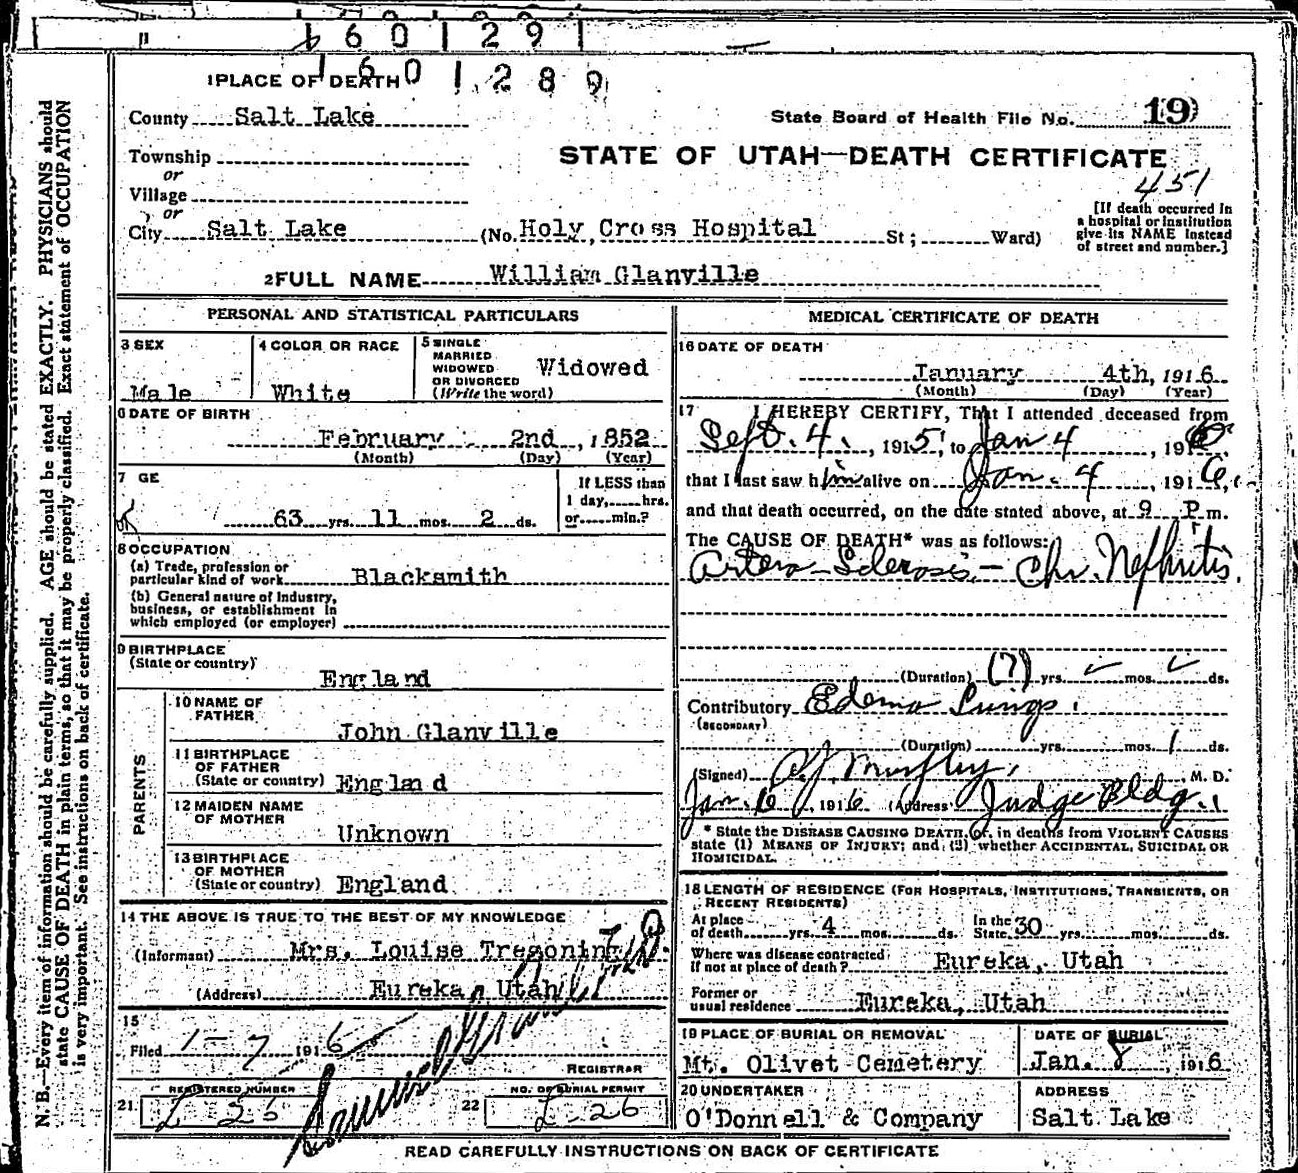 1 6 0 1 2 9 1
1 6 0 1 2 8 9
1 PLACE OF DEATH
County Salt Lake
State Board of Health File No. 19
Township
or
STATE OF UTAH—DEATH CERTIFICATE
451
Village
or
City Salt Lake (No. Holy Cross Hospital St; Ward)
[If death occurred in
a hospital or institution
give its NAME instead
of street and number.]
2 FULL NAME William Glanville
PERSONAL AND STATISTICAL PARTICULARS
3 SEX
Male
4 COLOR OR RACE
White
5 SINGLE
MARRIED
WIDOWED
OR DIVORCED
(Write the word)
Widowed
6 DATE OF BIRTH
February 2nd, 1852
(Month) (Day) (Year)
7 GE
63 yrs. 11 mos. 2 ds.
If LESS than
1 day, hrs.
or min.?
8 OCCUPATION
(a) Trade, profession or
particular kind of work Blacksmith
(b) General nature of Industry,
business, or establishment in
which employed (or employer)
9 BIRTHPLACE
(State or country)
England
PARENTS
10 NAME OF
FATHER
John Glanville
11 BIRTHPLACE
OF FATHER
(State or country) England
12 MAIDEN NAME
OF MOTHER
Unknown
13 BIRTHPLACE
OF MOTHER
(State or country) England
14 THE ABOVE IS TRUE TO THE BEST OF MY KNOWLEDGE
(Informant) Mrs. Louise Tregoning
(Address) Eureka, Utah
15
Filed 1-7 1916
REGISTRAR
REGISTERED NUMBER
21
NO. OF BURIAL PERMIT
22 L-26
MEDICAL CERTIFICATE OF DEATH
16 DATE OF DEATH
January 4th, 1916
(Month) (Day) (Year)
17 I HEREBY CERTIFY, That I attended deceased from
Sept. 4., 1915, to Jan 4, 1916
that I last saw him alive on Jan. 4, 1916,
and that death occurred, on the date stated above, at 9 P. m.
The CAUSE OF DEATH* was as follows:
Artero-Sclerosis - Chr. Nephritis.
(Duration) (7) yrs. mos. ds.
Contributory Edema Lungs.
(SECONDARY)
(Duration) yrs. mos. 1 ds.
(Signed) M. D.
Jan. 6, 1916 (Address Judge Bldg.
* State the DISEASE CAUSING DEATH, or, in deaths from VIOLENT CAUSES
state (1) MEANS OF INJURY; and (2) whether ACCIDENTAL, SUICIDAL OR
HOMICIDAL.
18 LENGTH OF RESIDENCE (FOR HOSPITALS, INSTITUTIONS, TRANSIENTS, OR
RECENT RESIDENTS)
At place
of death yrs. 4 mos. ds.
In the
State 30 yrs. mos. ds.
Where was disease contracted
if not at place of death? Eureka, Utah
Former or
usual residence Eureka, Utah
19 PLACE OF BURIAL OR REMOVAL
Mt. Olivet Cemetery
DATE OF BURIAL
Jan. 8, 1916
20 UNDERTAKER
O'Donnell & Company
ADDRESS
Salt Lake
READ CAREFULLY INSTRUCTIONS ON BACK OF CERTIFICATE
N. B.—Every item of information should be carefully supplied. AGE should be stated EXACTLY. PHYSICIANS should
state CAUSE OF DEATH in plain terms, so that it may be properly classified. Exact statement of OCCUPATION
is very important. See instructions on back of certificate.